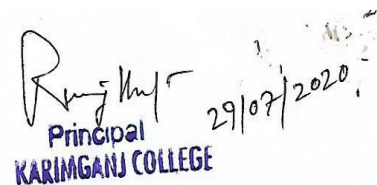 29/07/2020
Principal
KARIMGANJ COLLEGE